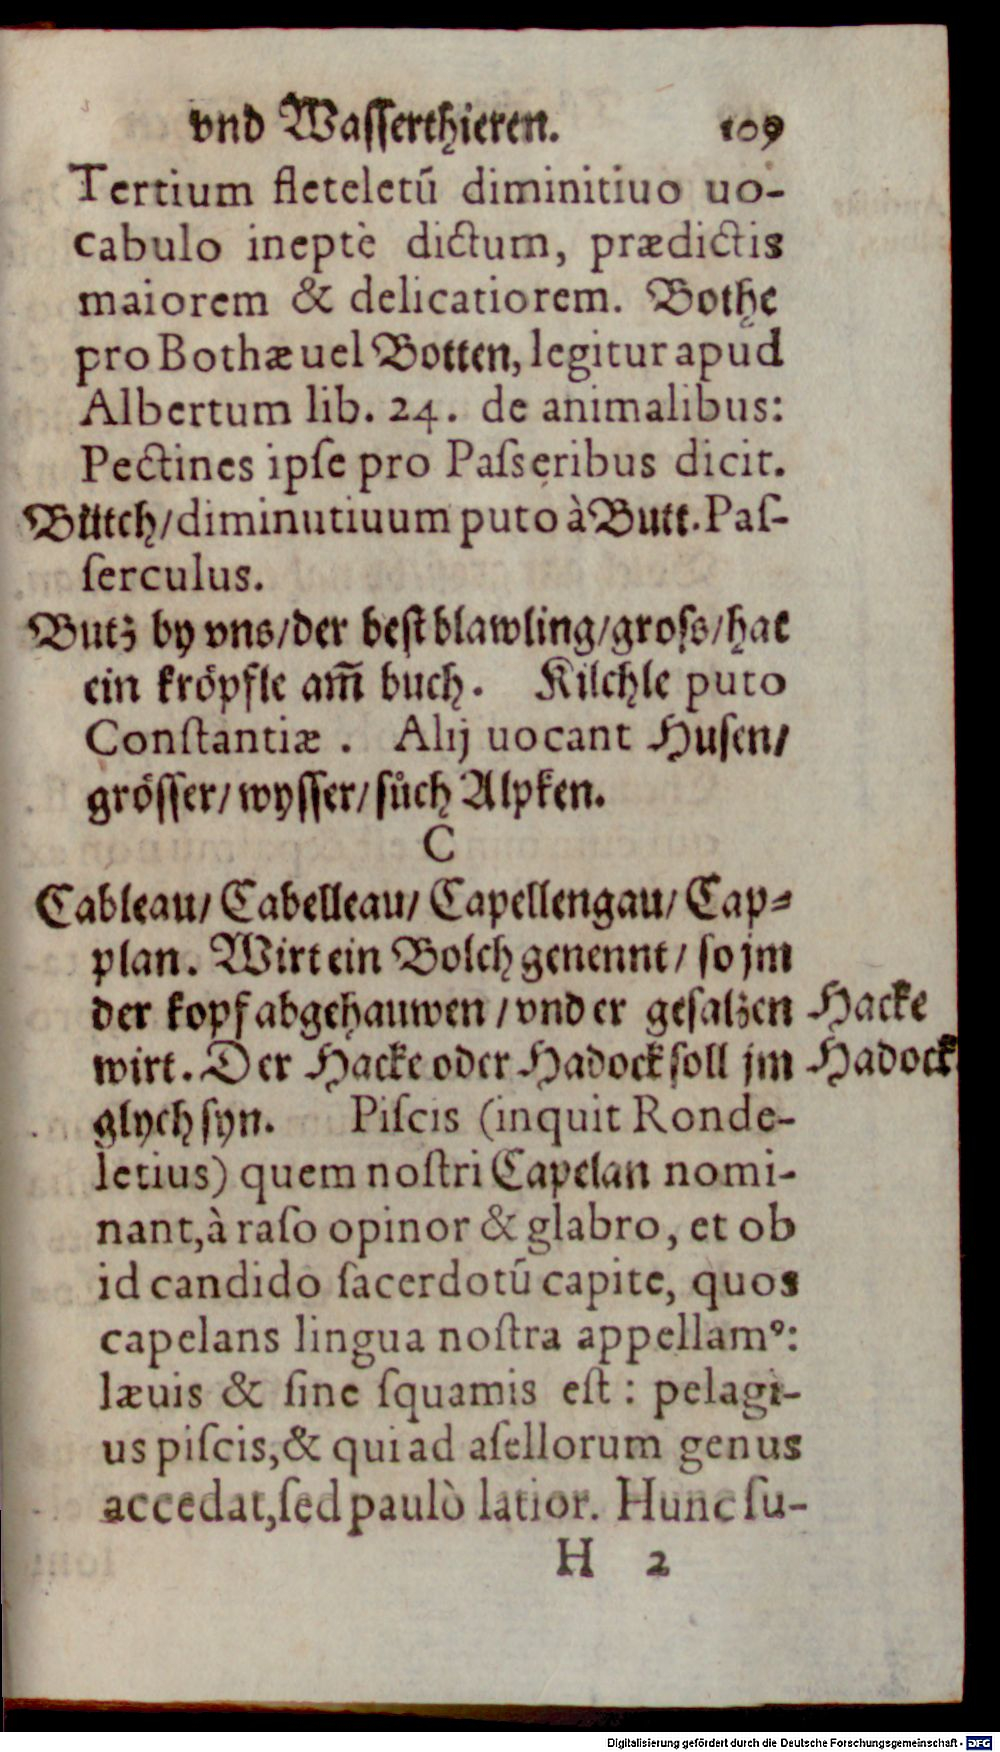 vnd Wasserthieren. 109
Tertium fleteletū diminitiuo uo-
cabulo ineptè dictum, prædictis
maiorem & delicatiorem. Bothe
pro Bothæ uel Botten, legitur apud
Albertum lib. 24. de animalibus:
Pectines ipſe pro Paſſeribus dicit.
Bütch/diminutiuum puto à Butt. Paſ-
ſerculus.
Butz by vns/der best blawling/gross/hat
ein kröpfle am̄ buch. Kilchle puto
Conſtantiæ. Alij uocant Husen/
grösser/wysser/sůch Alpken.
C
Cableau/ Cabelleau/ Capellengau/ Cap-
plan. Wirt ein Bolch genennt/ so jm
der kopf abgehauwen/vnd er gesalzen Hacke
wirt. Der Hacke oder Hadock soll jm Hadock
glych syn. Piſcis (inquit Ronde-
letius) quem noſtri Capelan nomi-
nant, à raſo opinor & glabro, et ob
id candido ſacerdotū capite, quos
capelans lingua noſtra appellamꝰ:
læuis & ſine ſquamis eſt: pelagi-
us piſcis, & qui ad aſellorum genus
accedat, ſed paulò latior. Hunc ſu-
H 2
Digitalisierung gefördert durch die Deutsche Forschungsgemeinschaft - DFG